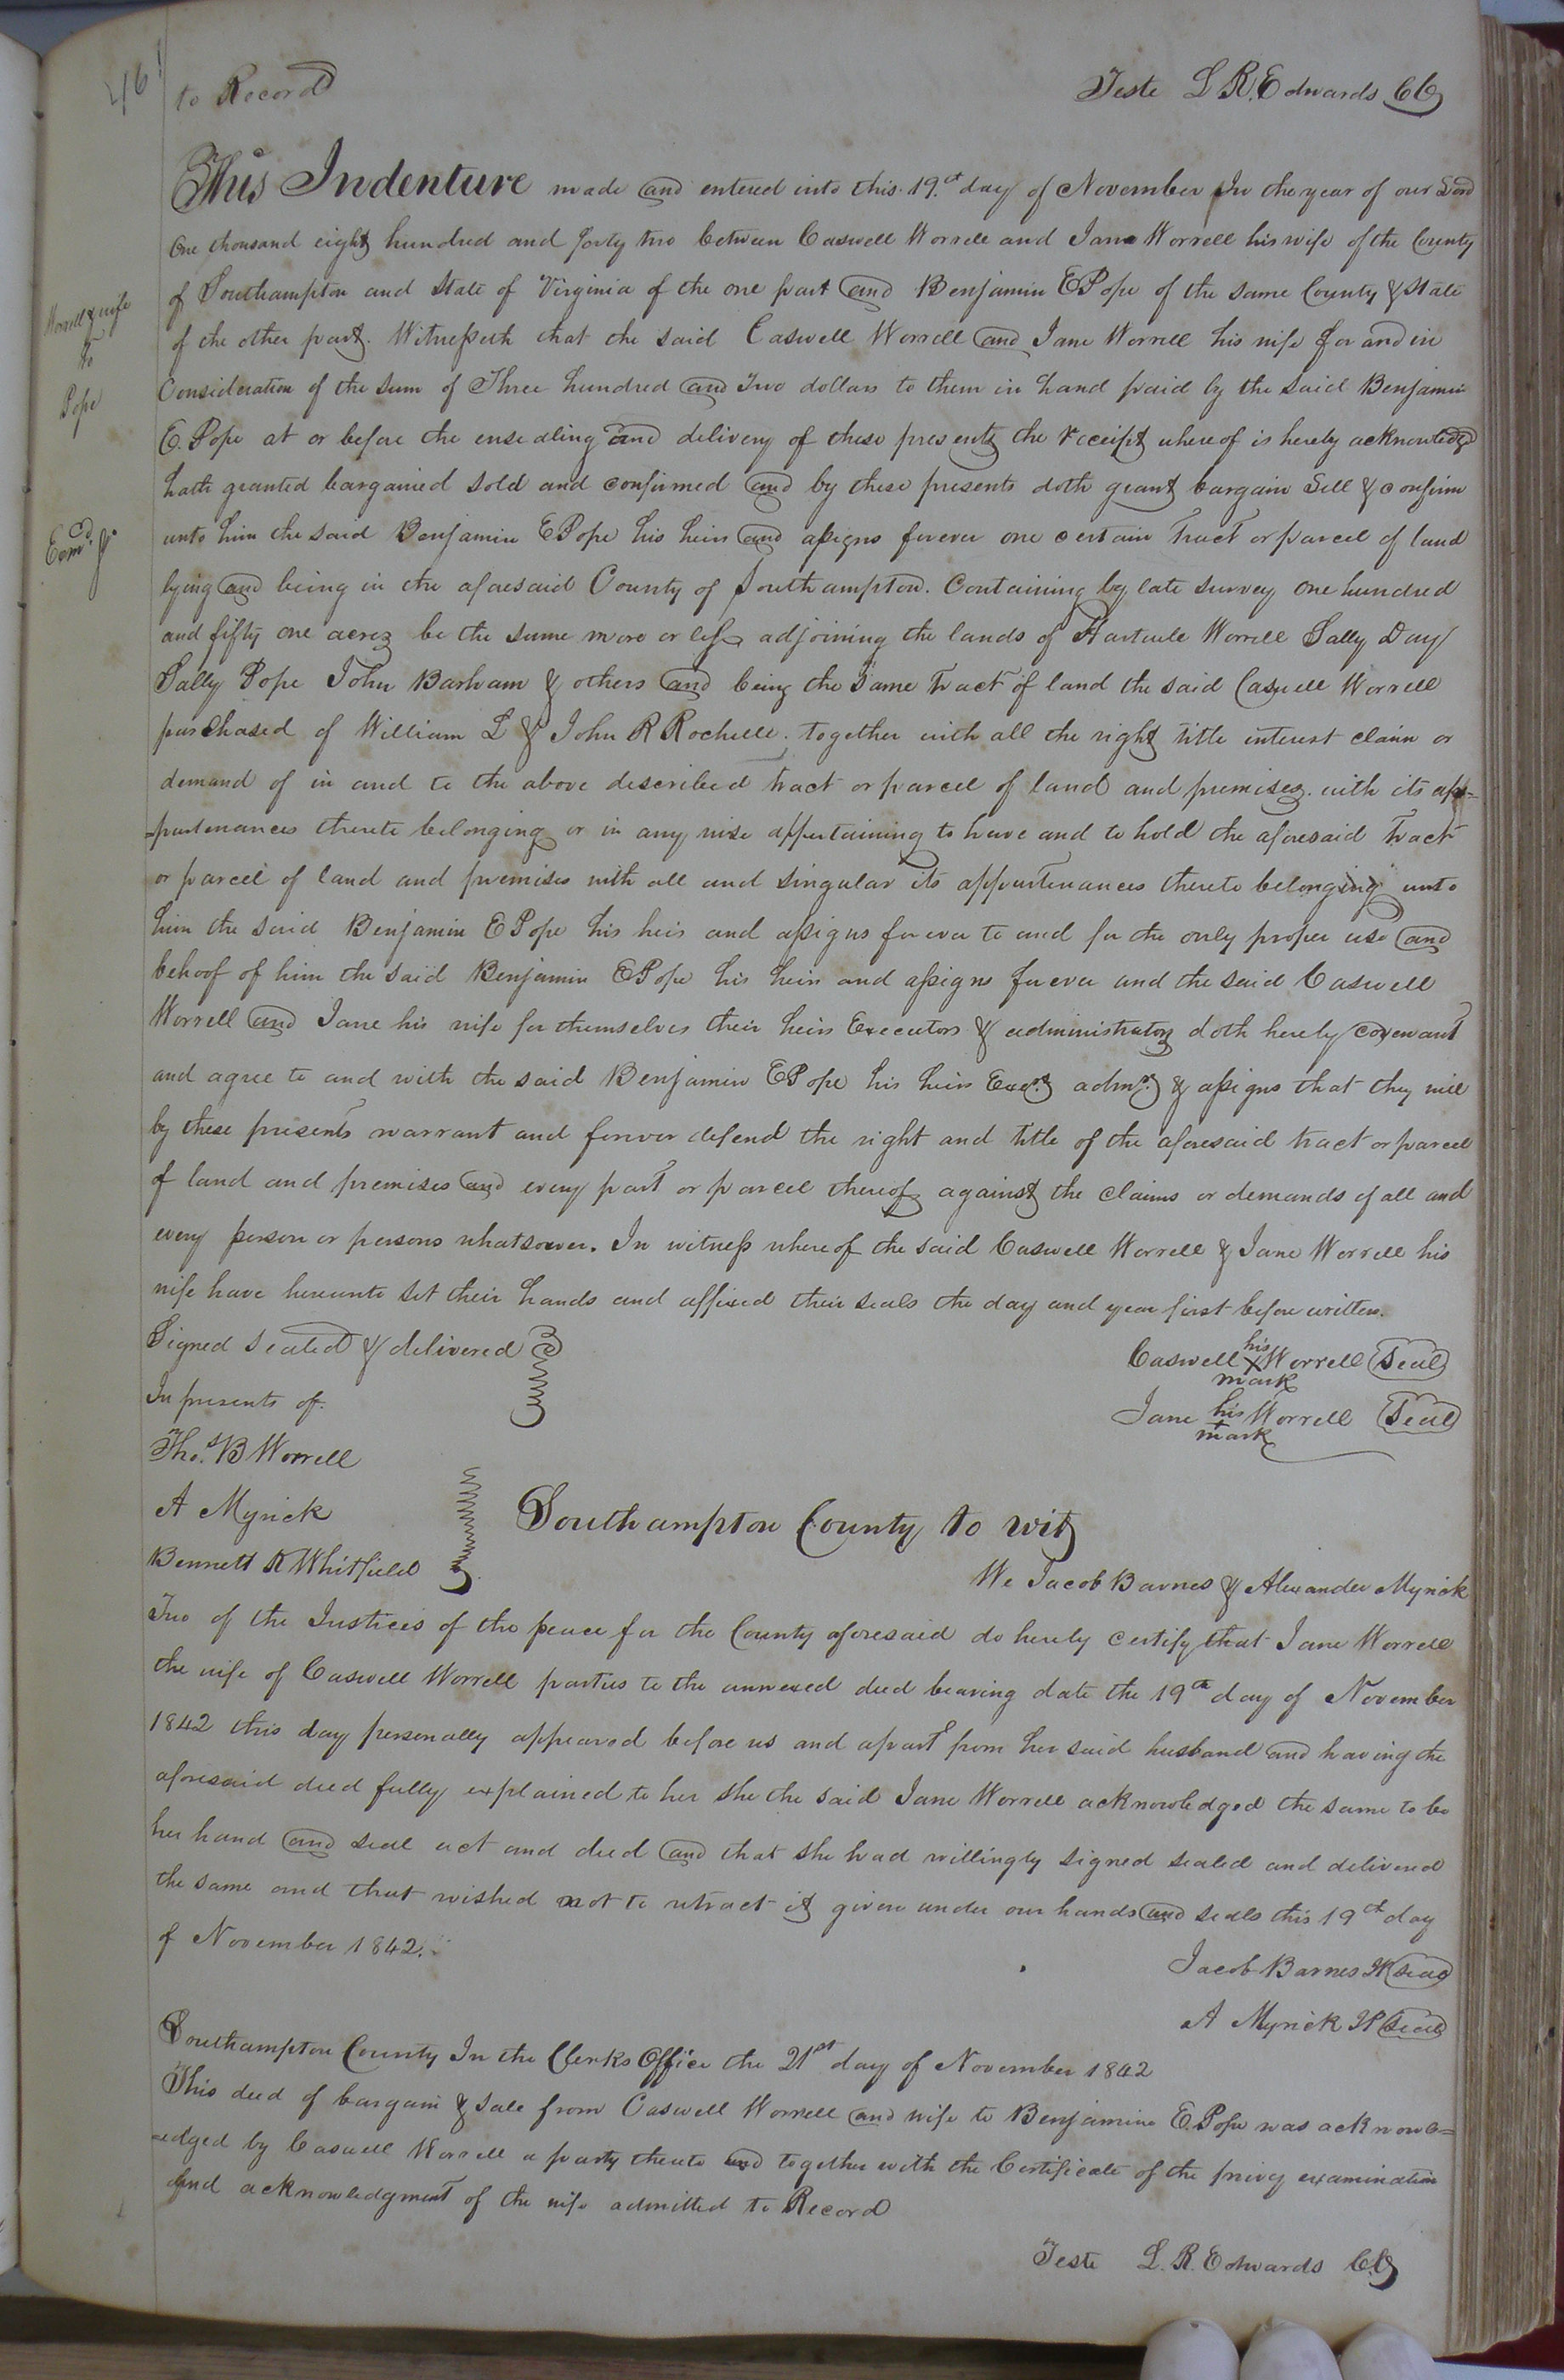 461
to Record
Teste L R. Edwards CC
This Indenture made and entered into this 19th day of November In the year of our Lord
One thousand eight hundred and forty two between Caswell Worrell and Jane Worrell his wife of the County
of Southampton and State of Virginia of the one part and Benjamin E Pope of the same County & State
of the other part. Witnesseth that the said Caswell Worrell and Jane Worrell his wife for and in
Consideration of the sum of Three hundred and Two dollars to them in hand paid by the said Benjamin
E. Pope at or before the ensealing and delivery of these presents the receipt whereof is hereby acknowledgd
hath granted bargained sold and confirmed and by these presents doth grant bargain Sell & confirm
unto him the said Benjamin E Pope his heirs and assigns forever one certain Tract or parcel of land
lying and being in the aforesaid County of Southampton. Containing by late survey One hundred
and fifty one acres be the same more or less adjoining the lands of Worrell Sally Day
Sally Pope John Barham & others and being the Same Tract of land the said Caswell Worrell
purchased of William L & John R Rochelle, together with all the right title interest claim or
demand of in and to the above described tract or parcel of land and premises. with its app-
-purtenances thereto belonging or in any wise appertaining to have and to hold the aforesaid Tract
or parcel of land and premises with all and singular its appurtenances thereto belonging unto
him the said Benjamin E Pope his heirs and assigns forever to and for the only proper use and
behoof of him the said Benjamin E Pope his heirs and assigns forever and the said Caswell
Worrell and Jane his wife for themselves their heirs Executors & administrators doth hereby covenant
and agree to and with the said Benjamin E Pope his heirs Exors admrs & assigns that they will
by these presents warrant and forever defend the right and title of the aforesaid tract or parcel
of land and premises and every part or parcel thereof against the claims or demands of all and
every person or persons whatsoever. In witness whereof the said Caswell Worrell & Jane Worrell his
wife have hereunto set their hands and affixed their seals the day and year first before written.
Signed sealed & delivered
In presents of
Thos. B Worrell
A Myrick
Bennett R Whitfield
Caswell his X mark Worrell Seal
Jane his + mark Worrell Seal
Southampton County to wit
We Jacob Barnes & Alexander Myrick
Two of the Justices of the peace for the County aforesaid do hereby certify that Jane Worrell
the wife of Caswell Worrell parties to the annexed deed bearing date the 19th day of November
1842 this day personally appeared before us and apart from her said husband and having the
aforesaid deed fully explained to her she the said Jane Worrell acknowledged the same to be
her hand and seal act and deed and that she had willingly signed sealed and delivered
the same and that wished not to retract it given under our hands and seals this 19th day
of November 1842.
Jacob Barnes JP Seal
A Myrick JP Seal
Southampton County In the Clerks Office the 21st day of November 1842
This deed of bargain & sale from Caswell Worrell and wife to Benjamin E. Pope was acknowl=
=edged by Caswell Worrell a party thereto and together with the Certificate of the privy examination
and acknowledgment of the wife admitted to Record
Teste L. R. Edwards CC
Worrell & wife
to
Pope